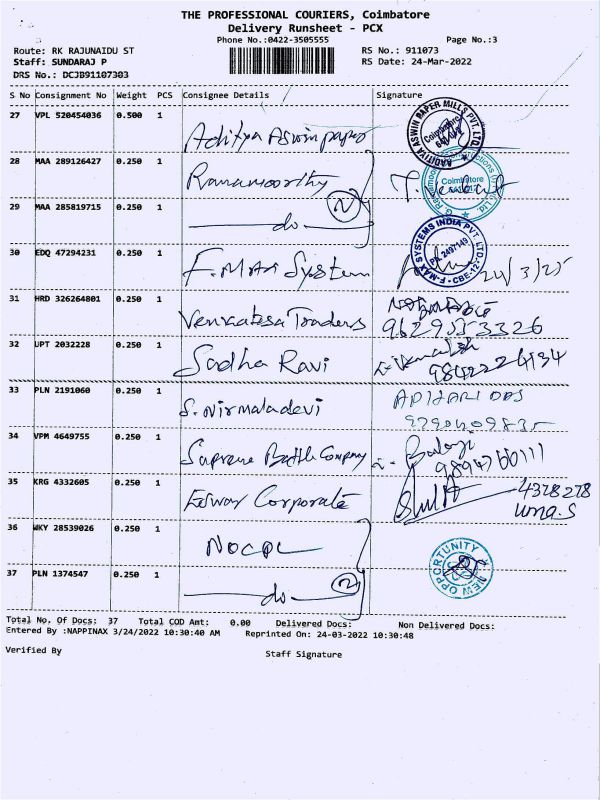 THE PROFESSIONAL COURIERS, Coimbatore
Delivery Runsheet - PCX
Phone No.:0422-3505555
Page No.:3
Route: RK RAJUNAIDU ST
RS No.: 911073
Staff: SUNDARAJ P
RS Date: 24-Mar-2022
DRS No.: DCJB91107303
S No Consignment No Weight PCS Consignee Details Signature
27 VPL 520454036 0.500 1
Aditya Aswin paper
AADITYA ASWIN PAPER MILLS PVT. LTD. Coimbatore
28 MAA 289126427 0.250 1
Ramamoorthy
Coimbatore
29 MAA 285819715 0.250 1
do 2
30 EDQ 47294231 0.250 1
F. Max System
F-MAX SYSTEMS INDIA PVT. LTD. PH: 2497149 CBE-12
31 HRD 326264801 0.250 1
Venkatesa Traders
9629553326
32 UPT 2032228 0.250 1
Sadha Ravi
9842224134
33 PLN 2191060 0.250 1
S. Nirmaladevi
34 VPM 4649755 0.250 1
Supreme Bottle Company
Balaji
35 KRG 4332605 0.250 1
Corporate
4328278
Uma.S
36 WKY 28539026 0.250 1
NOCPL
NEW OPPORTUNITY
37 PLN 1374547 0.250 1
do 2
Total No. Of Docs: 37 Total COD Amt: 0.00 Delivered Docs: Non Delivered Docs:
Entered By :NAPPINAX 3/24/2022 10:30:40 AM Reprinted On: 24-03-2022 10:30:48
Verified By
Staff Signature